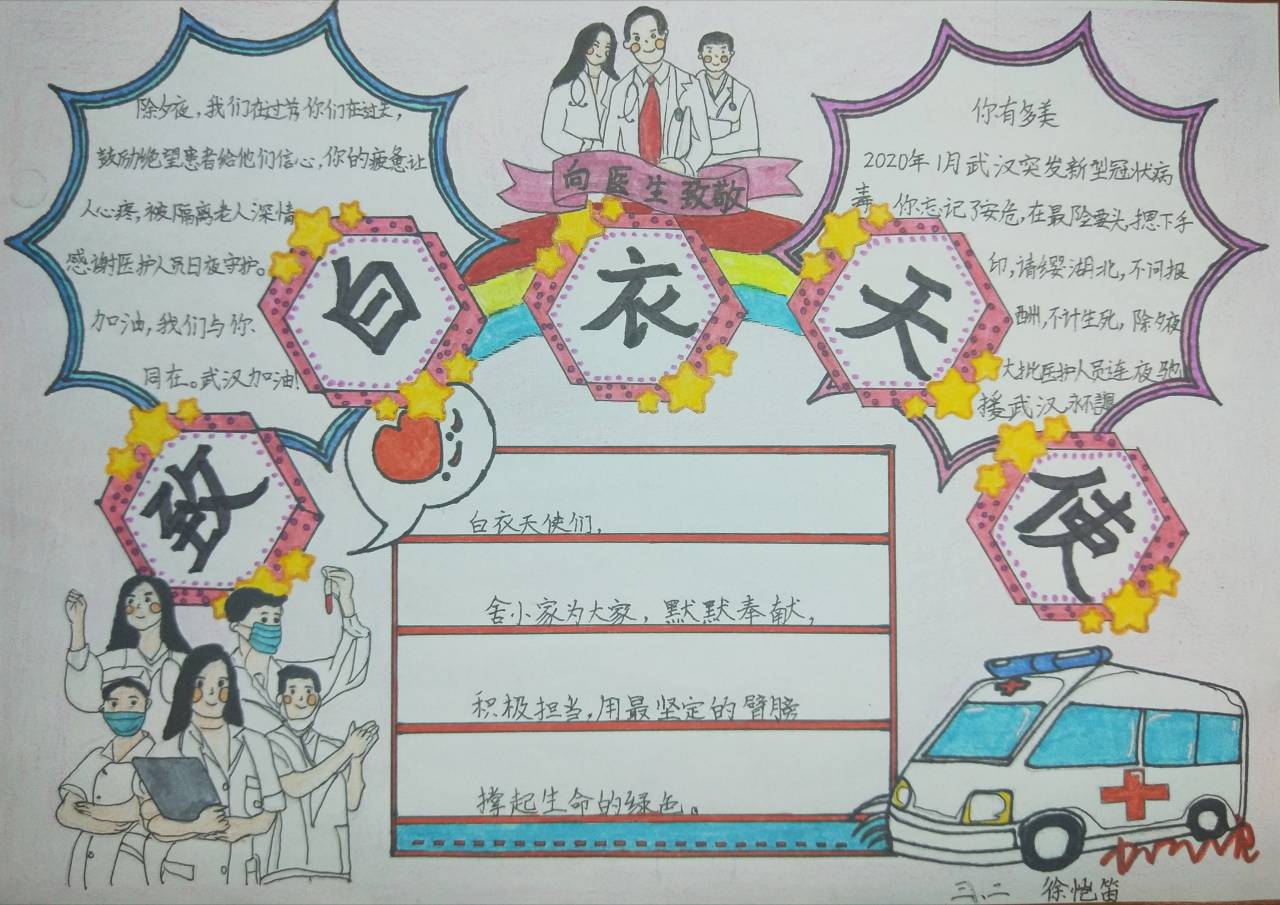 向医生致敬
致白衣天使
除夕夜,我们在过节你们在过关,
鼓励绝望患者给他们信心,你的疲惫让
人心疼,被隔离老人深情
感谢医护人员日夜守护。
加油,我们与你、
同在。武汉加油!
你有多美
2020年1月武汉突发新型冠状病
毒,你忘记了安危,在最险要头,摁下手
印,请缨湖北,不问报
酬,不计生死,除夕夜
大批医护人员连夜驰
援武汉
白衣天使们,
舍小家为大家,默默奉献,
积极担当,用最坚定的臂膀
撑起生命的绿色。
三、二 徐恺笛